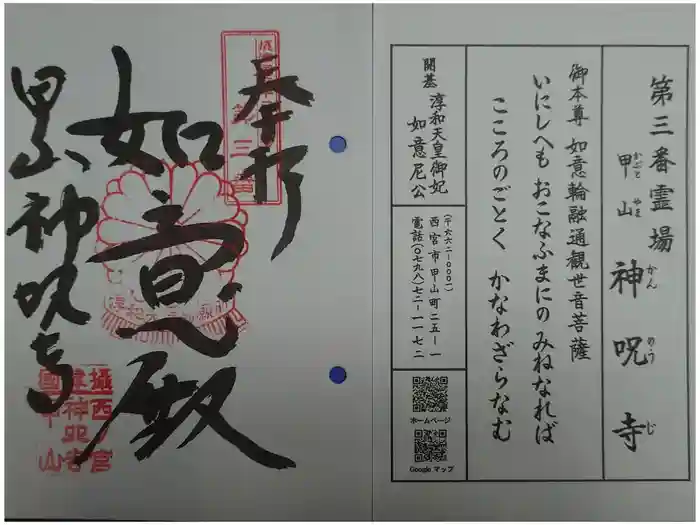 第三番霊場
甲山 神呪寺
かぶと やま かん のう じ
御本尊 如意輪融通観世音菩薩
いにしへも おこなふまにの みねなれば
こころのごとく かなわざらなむ
開基 淳和天皇御妃
如意尼公
(〒六六二-〇〇〇一)
西宮市甲山町二五-一
電話(〇七九八)七二-一一七二
ホームページ
Google マップ
奉拝
如意殿
甲山神呪寺
第三番
攝西宮
神呪寺
國甲山